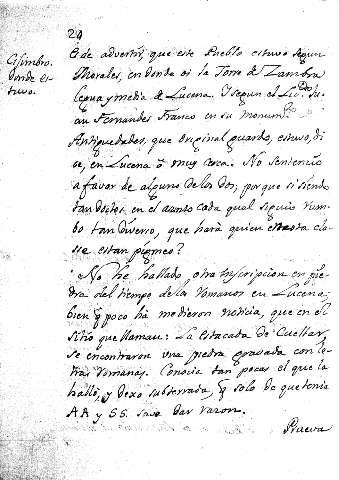 24
Cisimbro.
donde es-
tuvo.
Es de advertir, que este Pueblo estuvo segun
Morales, en donde oi la Torre de Zambra
legua y media de Lucena. Y segun el Licdo. Ju-
an Fernandes Franco en su monumt.
Antiguedades, que original guardo, estuvo, di
se, en Lucena ò muy cerca. No sentencio
a favor de alguno de los dos; porque si siendo
tan doctos, en el asunto cada qual siguio rum-
bo tan diverso, que harà quien en esta cla-
se es tan pigmeo?
No he hallado otra Inscripcion en pie-
dra del tiempo de los Romanos en Lucena,
bien q poco hà me dieron noticia, que en el
sitio que llaman: La estacada de Cuellar,
se encontraron una piedra gravada con le-
tras romanas. Conocia tan pocas el que la
hallò, y dexo subterrada, q solo de que tenia
AA y SS. save dar razon.
Nueva